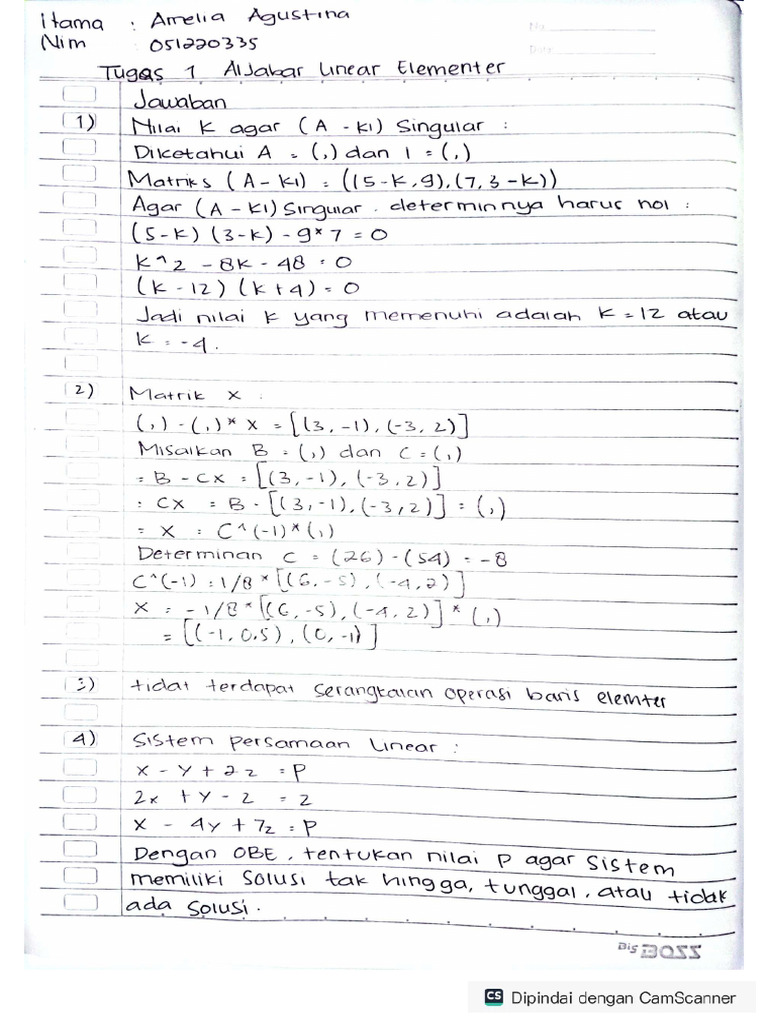 Nama : Amelia Agustina
Nim 051220335
No.
Date
Tugas 1 Aljabar Linear Elementer
Jawaban
1) Nilai K agar (A - KI) Singular :
Diketahui A = (,) dan I = (,)
Matriks (A - KI) = ((5-K, 9), (7, 3-K))
Agar (A - KI) Singular. determinnya harus nol :
(5-K) (3-K) - 9*7 = 0
K^2 - 8K - 48 = 0
(K - 12) (K + 4) = 0
Jadi nilai K yang memenuhi adalah K = 12 atau
K = -4.
2) Matrik X :
(,) - (,)* X = [(3, -1), (-3, 2)]
Misalkan B = (,) dan C = (,)
= B - CX = [(3, -1), (-3, 2)]
= CX = B - [(3, -1), (-3, 2)] = (,)
= X = C^(-1)*(,)
Determinan C = (26) - (54) = -8
C^(-1) = 1/8 * [(6, -5), (-4, 2)]
X = -1/8 * [(6, -5), (-4, 2)] * (,)
= [(-1, 0.5), (0, -1)]
3) tidat terdapat serangkaian operasi baris elemter
4) Sistem persamaan Linear :
x - y + 2z = P
2x + y - z = 2
x - 4y + 7z = P
Dengan OBE, tentukan nilai P agar sistem
memiliki solusi tak hingga, tunggal, atau tidak
ada solusi.
Big BOSS
CS Dipindai dengan CamScanner